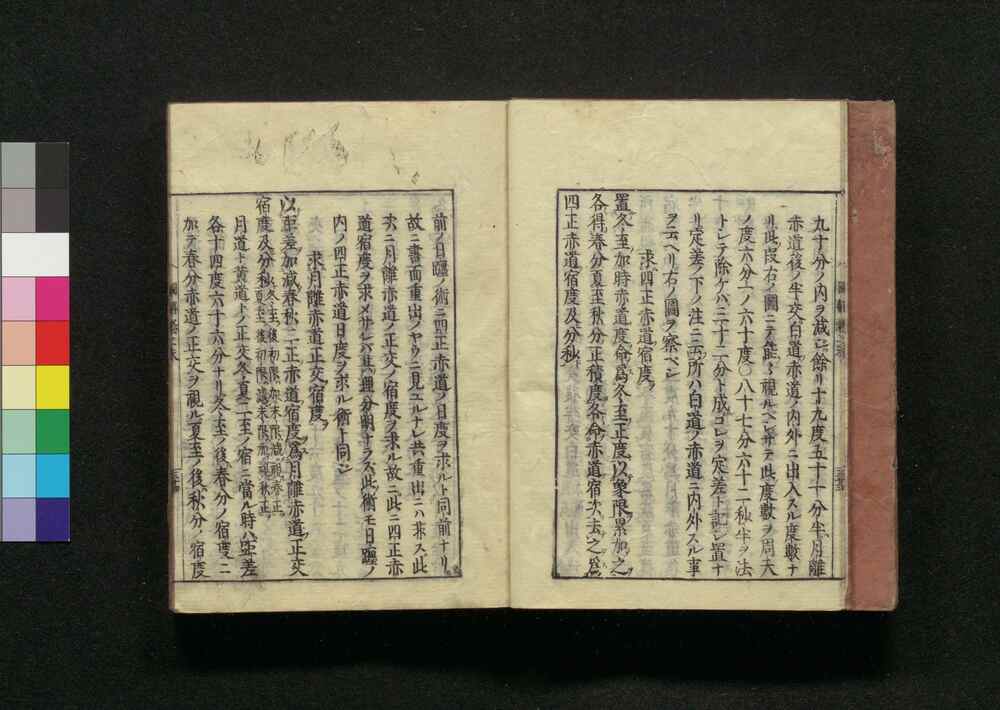 九十分ノ内ヲ減シ餘リ十九度五十一分半月離
赤道後ノ半交白道赤道ノ内外ニ出入スル度數ナ
リ此段右ノ圖ニテ能ク視ルヘシ 此度數ヲ周天
ノ度六分一ノ六十度〇八十七分六十二秒半ヲ法
トシテ除ケハ三十二分ト成コレヲ定差ト記シ置ナ
リ定差ノ下ノ注ニ云所ハ白道ノ赤道ニ内外スル事
ヲ云ヘリ右ノ圖ヲ察ベシ
求四正赤道宿度
置冬至加時赤道度命為冬至正度以象限累加之
各得春分夏至秋分正積度各命赤道宿次去之為
四正赤道宿度及分秒
前ノ日躔ノ術ニ四正赤道ノ日度ヲ求ルト同前ナリ
故ニ書面重出ノヤウニ見エルナレ共重出ニハ非ス此
次ニ月離赤道ノ正交ノ宿度ヲ求ル故ニ此ニ四正赤
道宿度ヲ求メサレバ其理分明ナラズ此術モ日躔ノ
内ノ四正赤道日度ヲ求ル術ト同シ
求月離赤道正交宿度
以距差加減春秋二正赤道宿度為月離赤道正交
宿度及分秒 冬至後初限加末限減視春正 夏至後初限減末限加視秋正
月道ト黄道トノ正交冬夏二至ノ宿ニ當ル時ハ距差
各十四度六十六分ナリ冬至ノ後春分ノ宿度ニ
加テ春分赤道ノ正交ヲ視ル夏至ノ後秋分ノ宿度